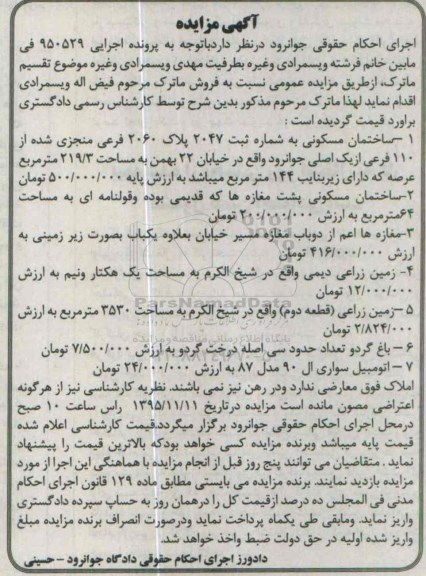 آگهی مزایده
اجرای احکام حقوقی جوانرود درنظر داردباتوجه به پرونده اجرایی ۹۵۰۵۲۹ فی
مابین خانم فرشته ویسمرادی وغیره بطرفیت مهدی ویسمرادی وغیره موضوع تقسیم
ماترک، ازطریق مزایده عمومی نسبت به فروش ماترک مرحوم فیض اله ویسمرادی
اقدام نماید لهذا ماترک مرحوم مذکور بدین شرح توسط کارشناس رسمی دادگستری
براورد قیمت گردیده است :
۱ –ساختمان مسکونی به شماره ثبت ۲۰۴۷ پلاک ۲۰۶۰ فرعی منجزی شده از
۱۱۰ فرعی ازیک اصلی جوانرود واقع در خیابان ۲۲ بهمن به مساحت ۲۱۹/۳ مترمربع
عرصه که دارای زیربنایب ۱۴۴ متر مربع میباشد به ارزش پایه ۵۰۰/۰۰۰/۰۰۰ تومان
۲-ساختمان مسکونی پشت مغازه ها که قدیمی بوده وقولنامه ای به مساحت
۶۴مترمربع به ارزش ۲۰۰/۰۰۰/۰۰۰ تومان
۳-مغازه ها اعم از دوباب مغازه مسیر خیابان بعلاوه یکباب بصورت زیر زمینی به
ارزش ۴۱۶/۰۰۰/۰۰۰ تومان
۴- زمین زراعی دیمی واقع در شیخ الکرم به مساحت یک هکتار ونیم به ارزش
۱۲/۰۰۰/۰۰۰ تومان
۵ –زمین زراعی (قطعه دوم) واقع در شیخ الکرم به مساحت ۳۵۳۰ مترمربع به ارزش
۲/۸۲۴/۰۰۰ تومان
۶ – باغ گردو تعداد حدود سی اصله درخت گردو به ارزش ۷/۵۰۰/۰۰۰ تومان
۷ – اتومبیل سواری ال ۹۰ مدل ۸۷ به ارزش ۲۴/۰۰۰/۰۰۰ تومان
املاک فوق معارضی ندارد ودر رهن نیز نمی باشند. نظریه کارشناسی نیز از هرگونه
اعتراضی مصون مانده است مزایده درتاریخ ۱۳۹۵/۱۱/۱۱ راس ساعت ۱۰ صبح
درمحل اجرای احکام حقوقی جوانرود برگزار میگردد.قیمت کارشناسی اعلام شده
قیمت پایه میباشد وبرنده مزایده کسی خواهد بودکه بالاترین قیمت را پیشنهاد
نماید . متقاضیان می توانند پنج روز قبل از انجام مزایده با هماهنگی این اجرا از مورد
مزایده بازدید نمایند. برنده مزایده می بایستی مطابق ماده ۱۲۹ قانون اجرای احکام
مدنی فی المجلس ده درصد ازقیمت کل را درهمان روز به حساب سپرده دادگستری
واریز نماید. ومابقی طی یکماه پرداخت نماید ودرصورت انصراف برنده مزایده مبلغ
واریز شده اولیه در حق دولت ضبط واخذ خواهد شد.
دادورز اجرای احکام حقوقی دادگاه جوانرود – حسینی
ParsNamadData